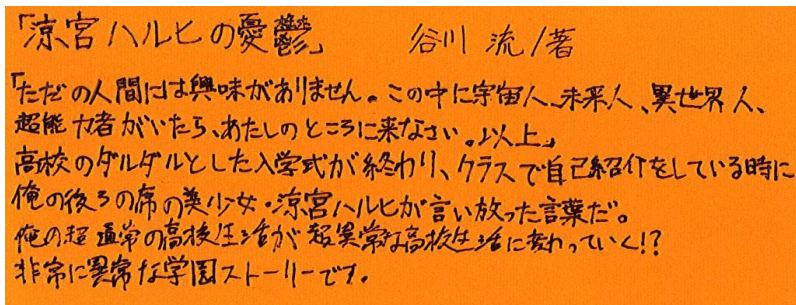 「涼宮ハルヒの憂鬱」 谷川 流/著
「ただの人間には興味がありません。この中に宇宙人、未来人、異世界人、
超能力者がいたら、あたしのところに来なさい。以上」
高校のダルダルとした入学式が終わり、クラスで自己紹介をしている時に
俺の後ろの席の美少女・涼宮ハルヒが言い放った言葉だ。
俺の超通常の高校生活が超異常な高校生活に変わっていく!?
非常に異常な学園ストーリーです。